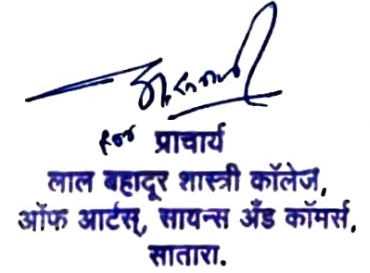 प्राचार्य
लाल बहादूर शास्त्री कॉलेज,
ऑफ आर्टस्, सायन्स अँड कॉमर्स,
सातारा.